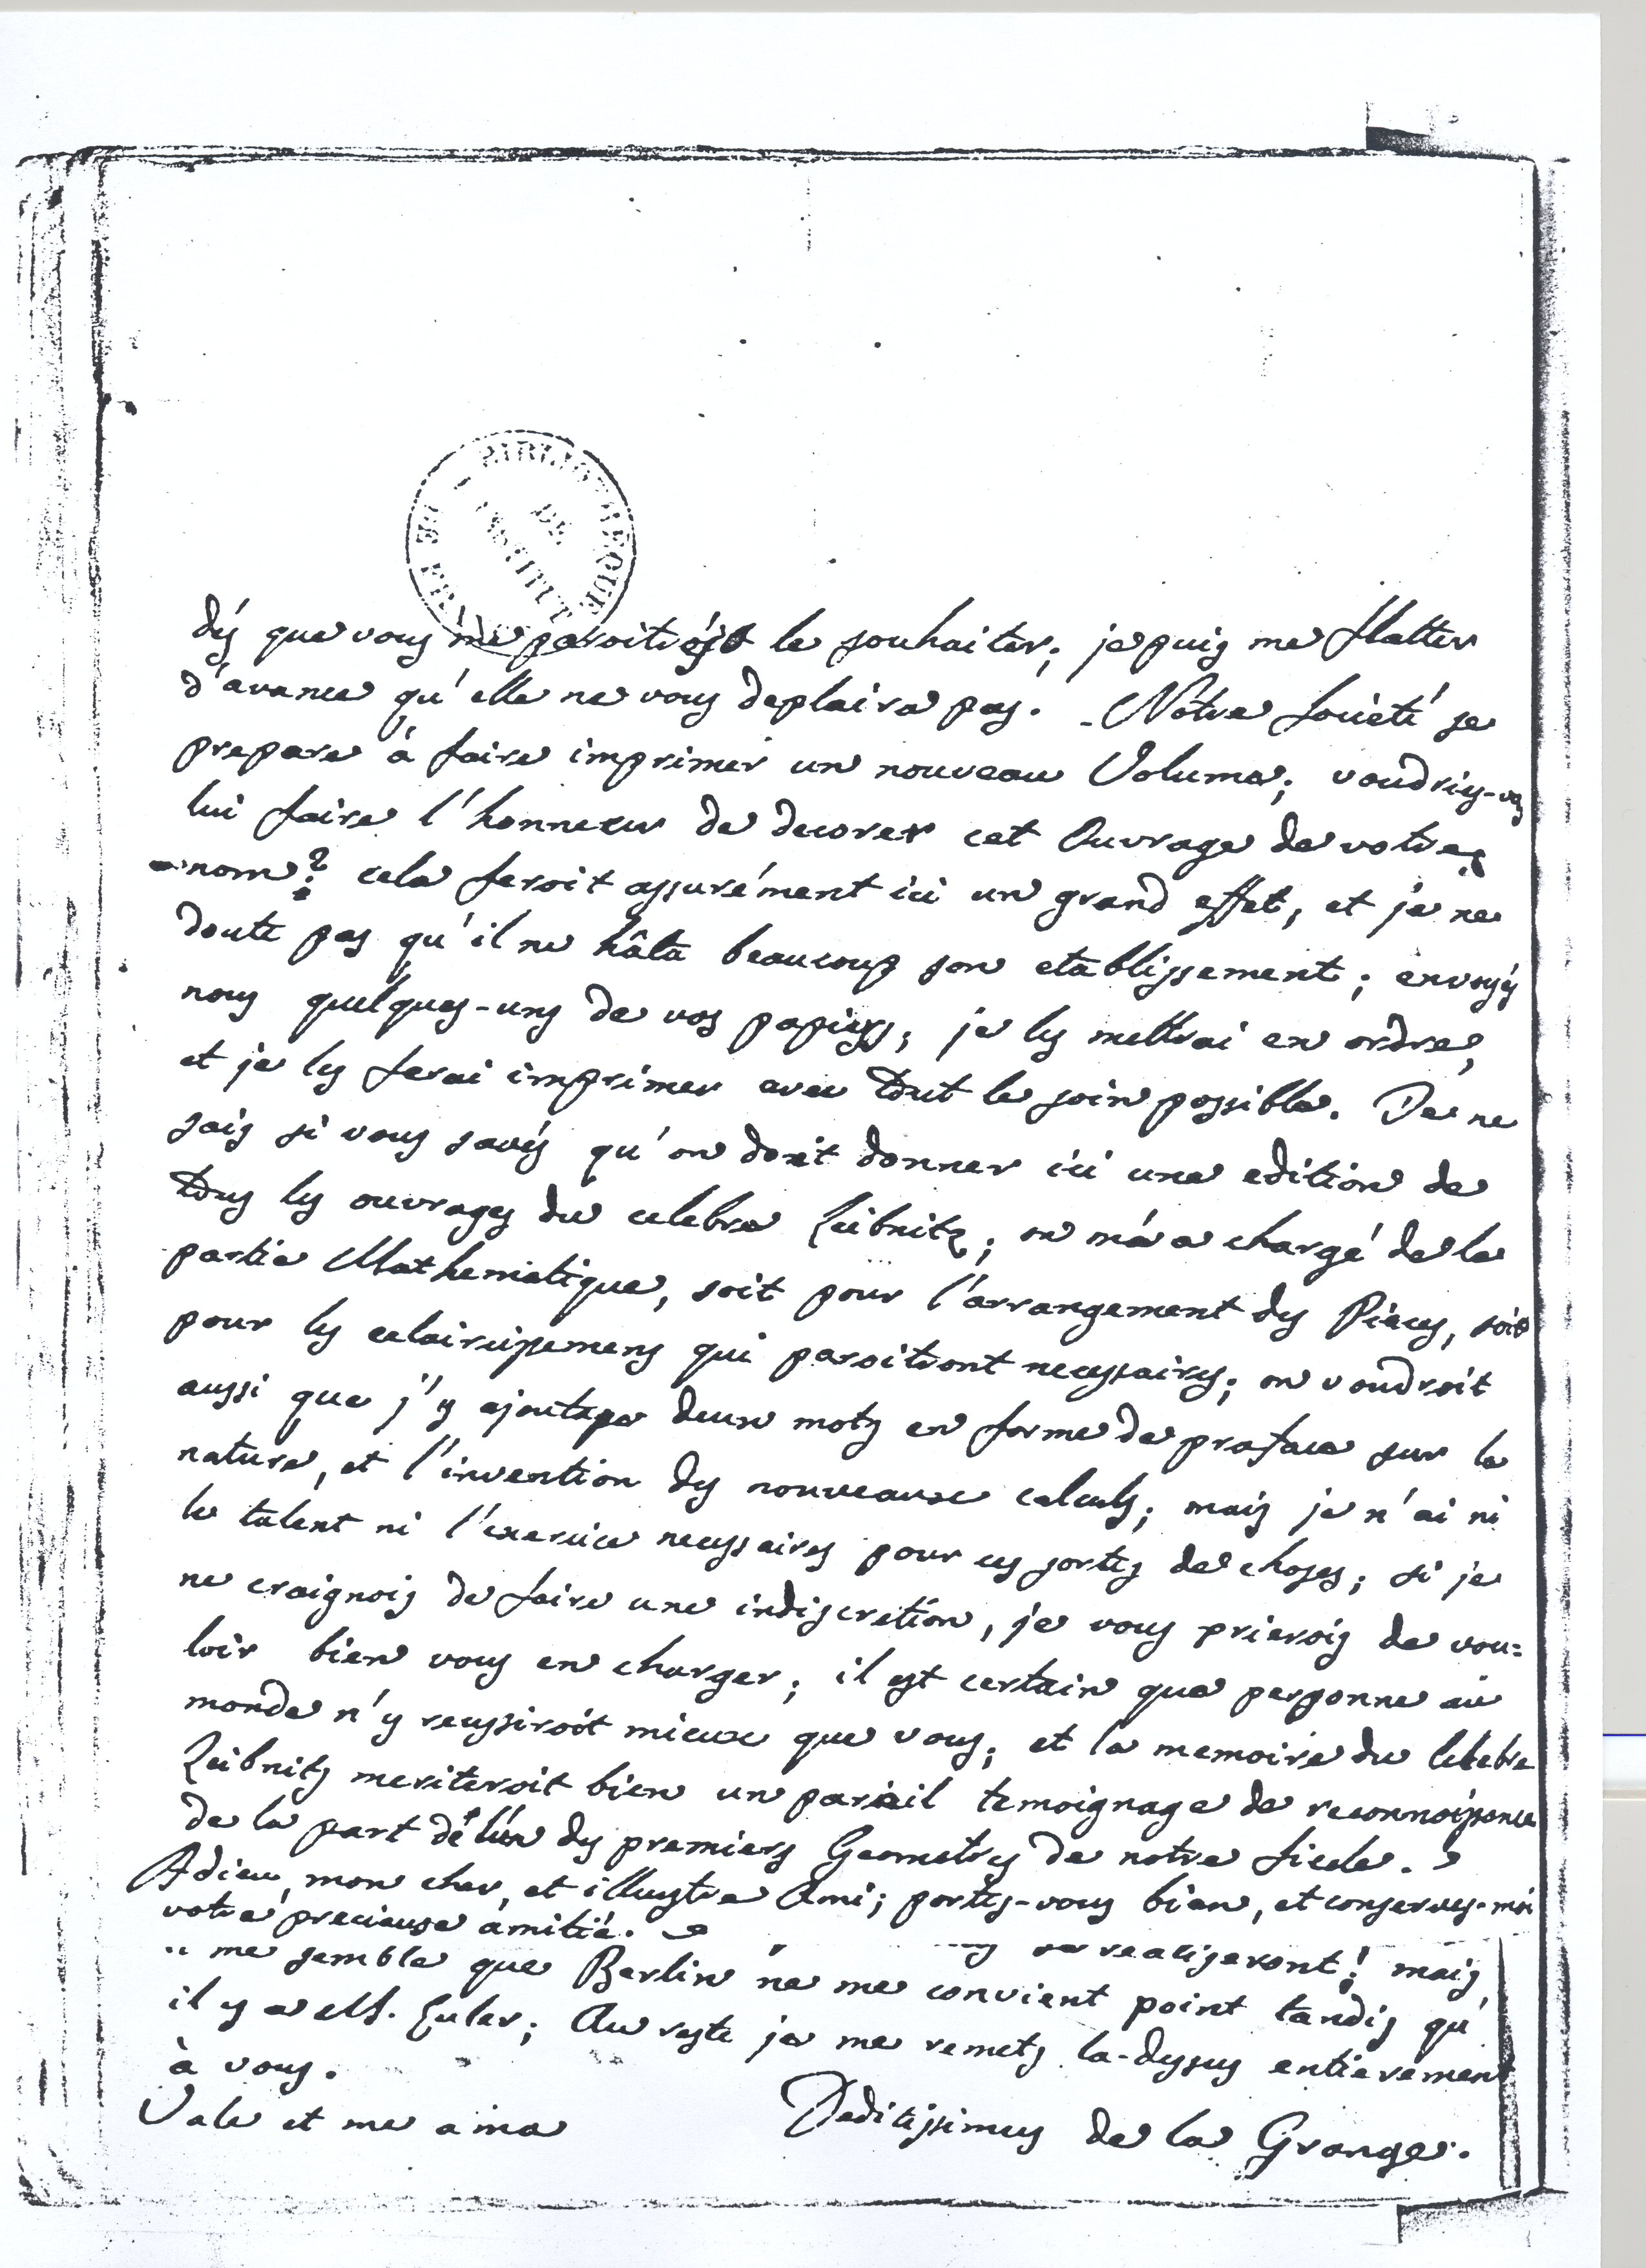 BIBLIOTHEQUE
DE
L'INSTITUT
DE FRANCE
dés que vous me paroitrés le souhaiter; je puis me flatter
d'avance qu'elle ne vous deplaira pas. Nôtre Societé se
prepare à faire imprimer un nouveau Volume; voudriés-vous
lui faire l'honneur de decorer cet Ouvrage de votre
nom? cela feroit assurément ici un grand effet, et je ne
doute pas qu'il ne hâta beaucoup son etablissement; envoyés
nous quelques-uns de vos papiers, je les mettrai en ordre,
et je les ferai imprimer avec tout le soin possible. Je ne
sais si vous savés qu'on doit donner ici une edition de
tous les ouvrages du celebre Leibnitz; on m'a chargé de la
partie Mathematique, soit pour l'arrangement des Pieces, soit
pour les eclaircissemens qui paroitront necessaires; on voudroit
aussi que j'y ajoutasse deux mots en forme de preface sur la
nature, et l'invention des nouveaux calculs; mais je n'ai ni
le talent ni l'exercice necessaires pour ces sortes de choses; si je
ne craignois de faire une indiscretion, je vous prierois de vou=
loir bien vous en charger; il est certain que personne au
monde n'y reussiroit mieux que vous; et la memoire du celebre
Leibnitz meriteroit bien un pareil temoignage de reconnoissance
de la part de l'un des premiers Geometres de notre Siecle.
Adieu, mon cher, et illustre Ami; portes-vous bien, et conserves-moi
votre precieuse amitié.
se realiseront! mais
me semble que Berlin ne me convient point tandis qu'
il y a M. Euler; Au reste je me remets la-dessus entierement
à vous.
Vale et me ama
Deditissimus de la Grange.